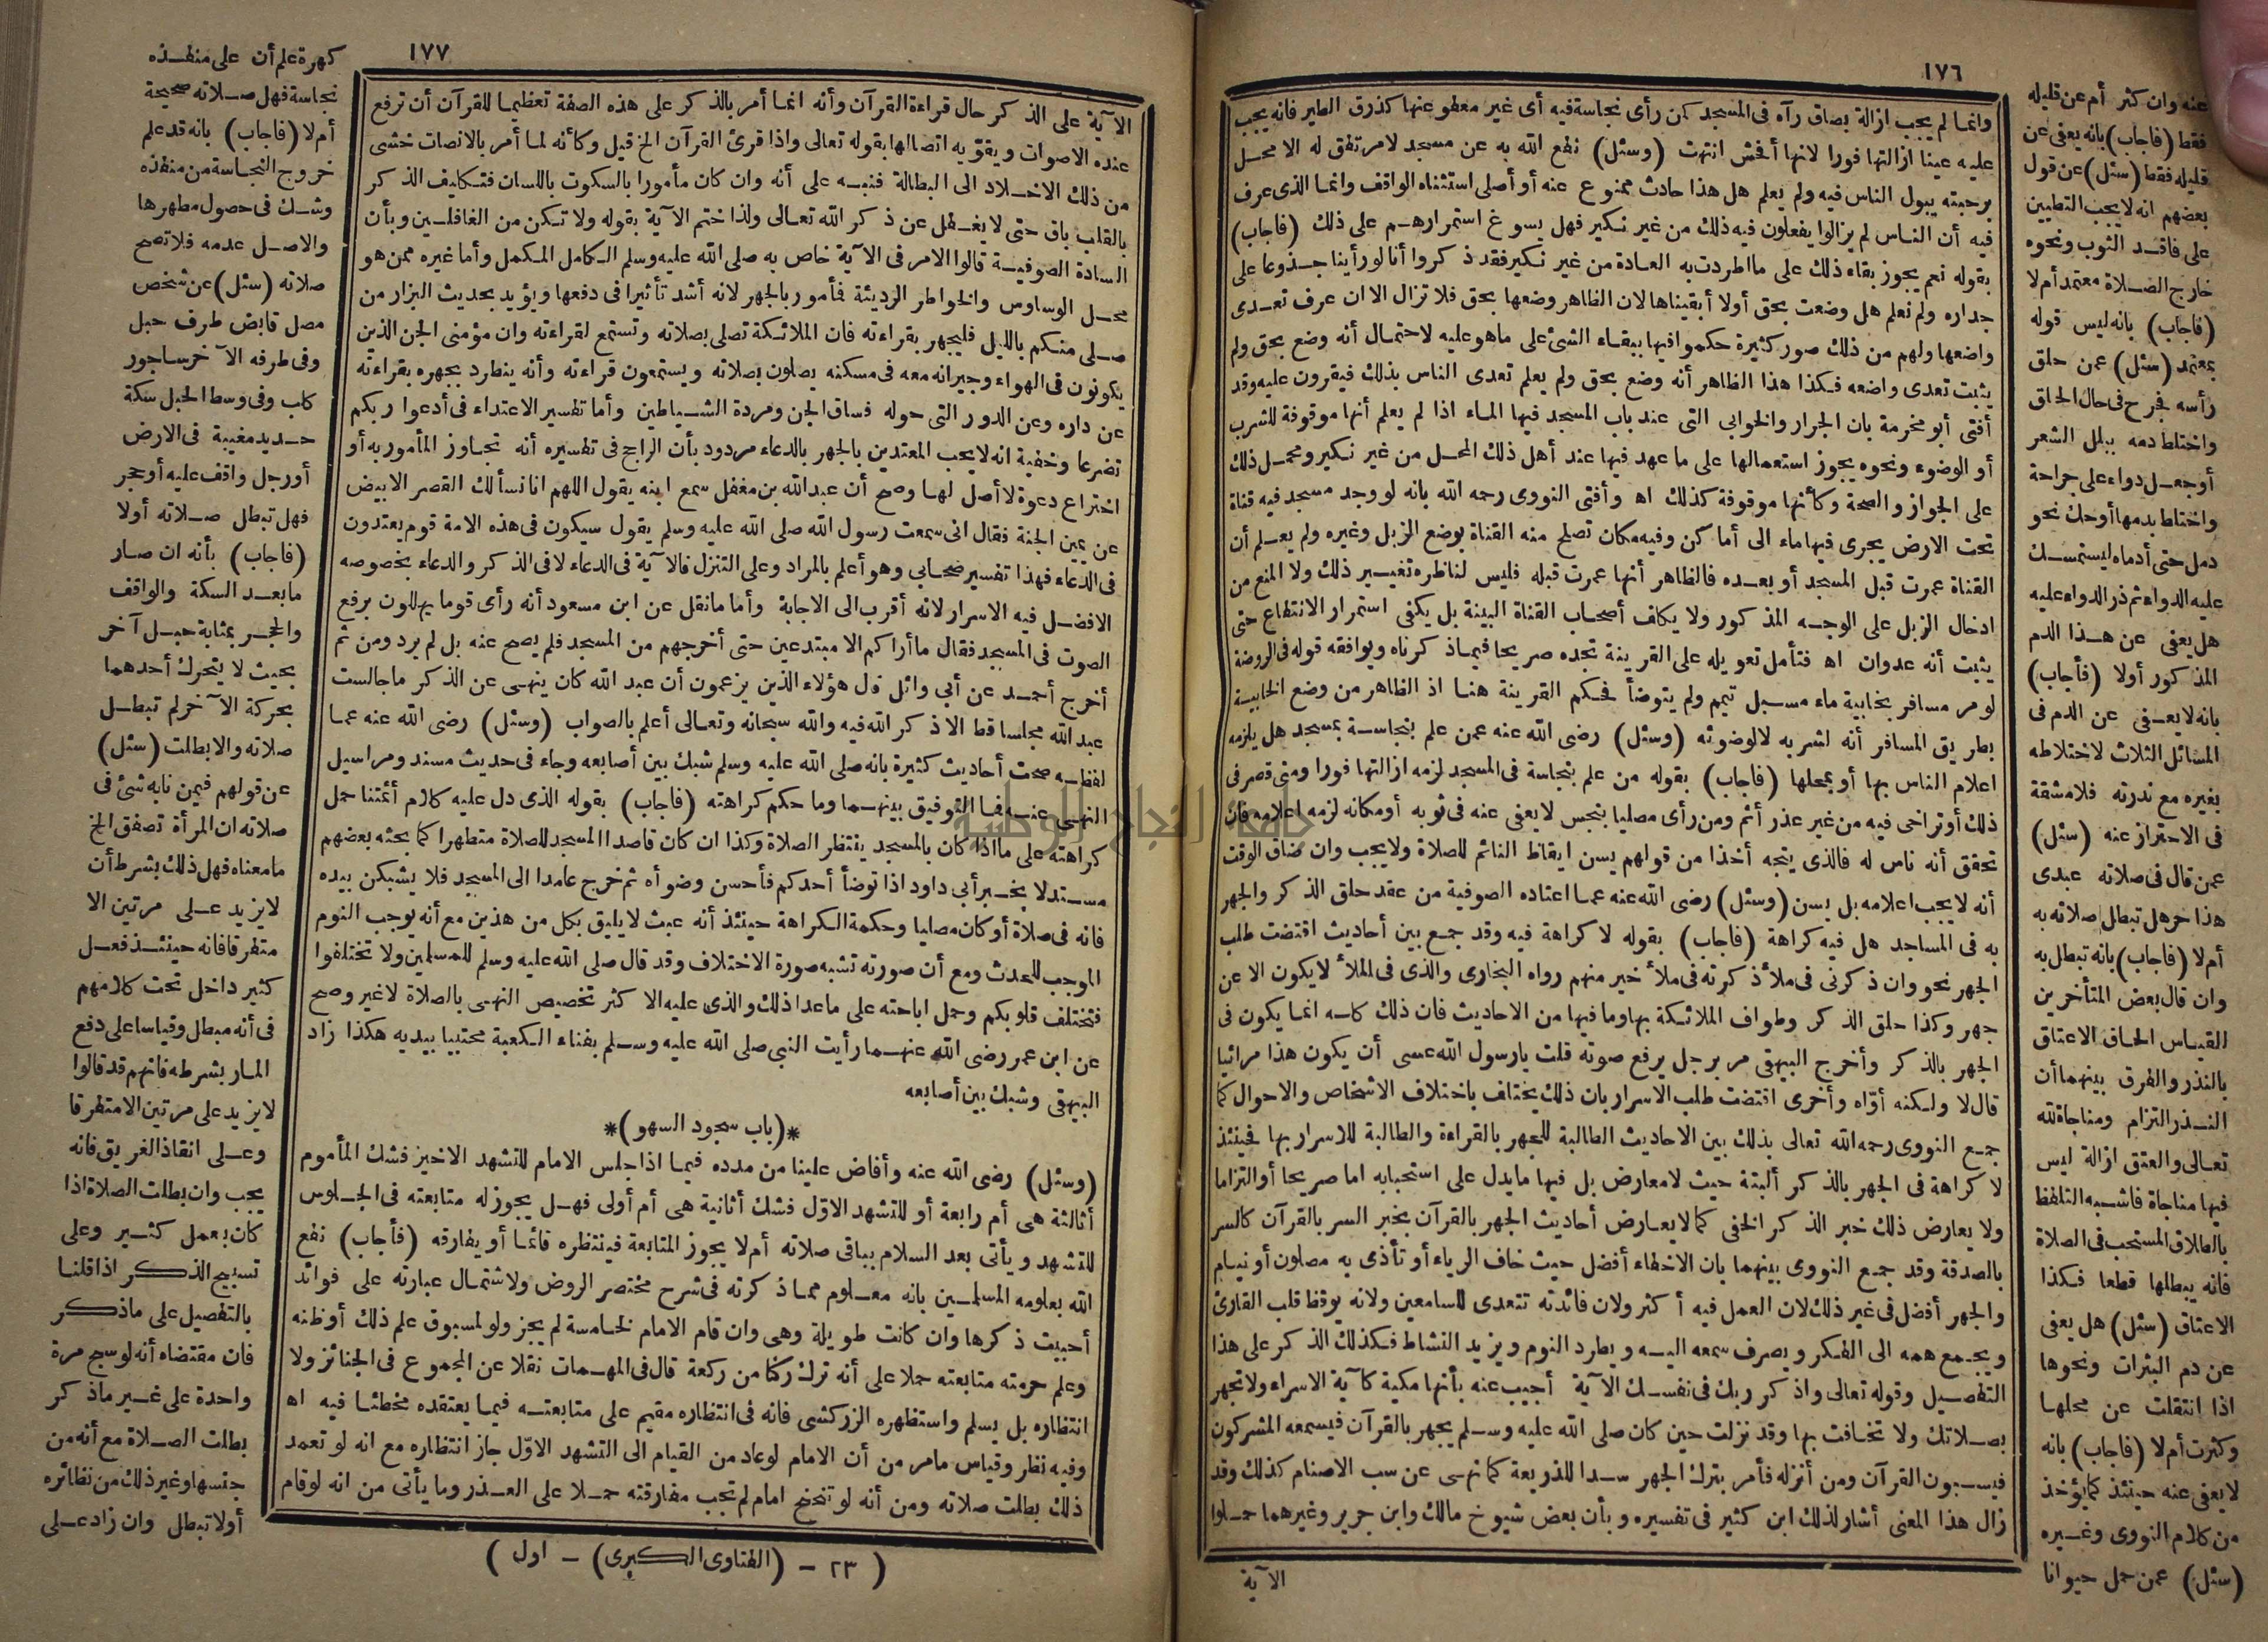 ١٧٦
وانما لم يجب ازالة بصاق رآه فى المسجد كمن رأى نجاسة فيه أى غير معفو عنها كذرق الطير فانه يجب
عليه عينا ازالتها فورا لانها أفحش انتهت (وسئل) نفع الله به عن مسجد لامر تفق له الا محل
برحبته يبول الناس فيه ولم يعلم هل هذا حادث ممنوع عنه أو أصلى استثناه الواقف وانما الذى عرف
فيه أن الناس لم يزالوا يفعلون فيه ذلك من غير نكير فهل يسوغ استمرارهم على ذلك (فاجاب)
بقوله نعم يجوز بقاء ذلك على ما اطردت به العادة من غير نكير فقد ذكروا أنا لو رأينا جذوعا على
جداره ولم نعلم هل وضعت بحق أولا أبقيناها لان الظاهر وضعها بحق فلا تزال الا ان عرف تعدى
واضعها ولهم من ذلك صور كثيرة حكموا فيها ببقاء الشئ على ما هو عليه لاحتمال أنه وضع بحق ولم
يثبت تعدى واضعه فكذا هذا الظاهر أنه وضع بحق ولم يعلم تعدى الناس بذلك فيقرون عليه وقد
أفتى أبو مخرمة بان الجرار والخوابى التى عند باب المسجد فيها الماء اذا لم يعلم أنها موقوفة للشرب
أو الوضوء ونحوه يجوز استعمالها على ما عهد فيها عند أهل ذلك المحل من غير نكير ومحمل ذلك
على الجواز والصحة وكأنها موقوفة كذلك اه وأفتى النووى رحمه الله بانه لو وجد مسجد فيه قناة
تحت الارض يجرى فيها ماء الى أماكن وفيه مكان تصلح منه القناة بوضع الزبل وغيره ولم يعلم أن
القناة عمرت قبل المسجد أو بعده فالظاهر أنها عمرت قبله فليس لناظره تغيير ذلك ولا المنع من
ادخال الزبل على الوجه المذكور ولا يكلف أصحاب القناة البينة بل يكفى استمرار الانتفاع حتى
يثبت أنه عدوان اه فتأمل تعويله على القرينة تجده صريحا فيما ذكرناه ويوافقه قوله فى الروضة
لو مر مسافر بخابية ماء مسبل تيمم ولم يتوضأ فحكم القرينة هنا اذ الظاهر من وضع الخابية
بطريق المسافر أنه لشربه لا لوضوئه (وسئل) رضى الله عنه عمن علم بنجاسة بمسجد هل يلزمه
اعلام الناس بها أو بمحلها (فاجاب) بقوله من علم بنجاسة فى المسجد لزمه ازالتها فورا ومتى قصر فى
ذلك أو تراخى فيه من غير عذر أثم ومن رأى مصليا بنجس لا يعفى عنه فى ثوبه أو مكانه لزمه اعلامه فان
تحقق أنه ناس له فالذى يتجه أخذا من قولهم يسن ايقاظ النائم للصلاة ولا يجب وان ضاق الوقت
أنه لا يجب اعلامه بل يسن (وسئل) رضى الله عنه عما اعتاده الصوفية من عقد حلق الذكر والجهر
به فى المساجد هل فيه كراهة (فاجاب) بقوله لا كراهة فيه وقد جمع بين أحاديث اقتضت طلب
الجهر نحو وان ذكرنى فى ملأ ذكرته فى ملأ خير منهم رواه البخارى والذى فى الملأ لا يكون الا عن
جهر وكذا حلق الذكر وطواف الملائكة بها وما فيها من الاحاديث فان ذلك كله انما يكون فى
الجهر بالذكر وأخرج البيهقى مر برجل يرفع صوته قلت يا رسول الله عسى أن يكون هذا مرائيا
قال لا ولكنه أواه وأخرى اقتضت طلب الاسرار بان ذلك يختلف باختلاف الاشخاص والاحوال كما
جمع النووى رحمه الله تعالى بذلك بين الاحاديث الطالبة للجهر بالقراءة والطالبة للاسرار بها فحينئذ
لا كراهة فى الجهر بالذكر ألبتة حيث لا معارض بل فيها ما يدل على استحبابه اما صريحا أو التزاما
ولا يعارض ذلك خبر الذكر الخفى كما لا يعارض أحاديث الجهر بالقرآن بخبر السر بالقرآن كالسر
بالصدقة وقد جمع النووى بينهما بان الاخفاء أفضل حيث خاف الرياء أو تأذى به مصلون أو نيام
والجهر أفضل فى غير ذلك لان العمل فيه أكثر ولان فائدته تتعدى للسامعين ولانه يوقظ قلب القارئ
ويجمع همه الى الفكر ويصرف سمعه اليه ويطرد النوم ويزيد النشاط فكذلك الذكر على هذا
التفصيل وقوله تعالى واذكر ربك فى نفسك الآية أجيب عنه بأنها مكية كآية الاسراء ولا تجهر
بصلاتك ولا تخافت بها وقد نزلت حين كان صلى الله عليه وسلم يجهر بالقرآن فيسمعه المشركون
فيسبون القرآن ومن أنزله فأمر بترك الجهر سدا للذريعة كما نهى عن سب الاصنام كذلك وقد
زال هذا المعنى أشار لذلك ابن كثير فى تفسيره وبأن بعض شيوخ مالك وابن جرير وغيرهما حملوا
الآية
عنه وان كثر أم عن قليله
فقط (فاجاب) بانه يعفى عن
قليله فقط (سئل) عن قول
بعضهم انه لا يجب التطيين
على فاقد الثوب ونحوه
خارج الصلاة معتمد أم لا
(فاجاب) بانه ليس قوله
بمعتمد (سئل) عمن حلق
رأسه فجرح فى حال الحلق
واختلط دمه ببلل الشعر
أو جعل دواء على جراحة
واختلط بدمها أو حك نحو
دمل حتى أدماه ليستمسك
عليه الدواء ثم ذر الدواء عليه
هل يعفى عن هذا الدم
المذكور أولا (فأجاب)
بانه لا يعفى عن الدم فى
المسائل الثلاث لاختلاطه
بغيره مع ندرته فلا مشقة
فى الاحتراز عنه (سئل)
عمن قال فى صلاته عبدى
هذا حر هل تبطل صلاته به
أم لا (فاجاب) بانه تبطل به
وان قال بعض المتأخرين
القياس الحاق الاعتاق
بالنذر والفرق بينهما أن
النذر التزام ومناجاة لله
تعالى والعتق ازالة ليس
فيها مناجاة فاشبه التلفظ
بالطلاق المستحب فى الصلاة
فانه يبطلها قطعا فكذا
الاعتاق (سئل) هل يعفى
عن دم البثرات ونحوها
اذا انتقلت عن محلها
وكثرت أم لا (فاجاب) بانه
لا يعفى عنه حينئذ كما يؤخذ
من كلام النووى وغيره
(سئل) عمن حمل حيوانا
١٧٧
الآية على الذكر حال قراءة القرآن وأنه انما أمر بالذكر على هذه الصفة تعظيما للقرآن أن ترفع
عنده الاصوات ويقويه اتصالها بقوله تعالى واذا قرئ القرآن الخ قيل وكأنه لما أمر بالانصات خشى
من ذلك الاخلاد الى البطالة فنبه على أنه وان كان مأمورا بالسكوت باللسان فتكليف الذكر
بالقلب باق حتى لا يغفل عن ذكر الله تعالى ولذا ختم الآية بقوله ولا تكن من الغافلين وبأن
السادة الصوفية قالوا الامر فى الآية خاص به صلى الله عليه وسلم الكامل المكمل وأما غيره ممن هو
محل الوساوس والخواطر الرديئة فمأمور بالجهر لانه أشد تأثيرا فى دفعها ويؤيد بحديث البزار من
صلى منكم بالليل فليجهر بقراءته فان الملائكة تصلى بصلاته وتستمع لقراءته وان مؤمنى الجن الذين
يكونون فى الهواء وجيرانه معه فى مسكنه يصلون بصلاته ويستمعون قراءته وأنه ينطرد بجهره بقراءته
عن داره وعن الدور التى حوله فساق الجن ومردة الشياطين وأما تفسير الاعتداء فى أدعوا ربكم
تضرعا وخفية انه لا يحب المعتدين بالجهر بالدعاء مردود بأن الراجح فى تفسيره أنه تجاوز المأمور به أو
اختراع دعوة لا أصل لها وصح أن عبد الله بن مغفل سمع ابنه يقول اللهم انا نسألك القصر الابيض
عن يمين الجنة فقال انى سمعت رسول الله صلى الله عليه وسلم يقول سيكون فى هذه الامة قوم يعتدون
فى الدعاء فهذا تفسير صحابى وهو أعلم بالمراد وعلى التنزل فالآية فى الدعاء لا فى الذكر والدعاء بخصوصه
الافضل فيه الاسرار لانه أقرب الى الاجابة وأما ما نقل عن ابن مسعود أنه رأى قوما يهللون برفع
الصوت فى المسجد فقال ما أراكم الا مبتدعين حتى أخرجهم من المسجد فلم يصح عنه بل لم يرد ومن ثم
أخرج أحمد عن أبى وائل قال هؤلاء الذين يزعمون أن عبد الله كان ينهى عن الذكر ما جالست
عبد الله مجلسا قط الا ذكر الله فيه والله سبحانه وتعالى أعلم بالصواب (وسئل) رضى الله عنه عما
لفظه صحت أحاديث كثيرة بانه صلى الله عليه وسلم شبك بين أصابعه وجاء فى حديث مسند ومراسيل
النهى عنه فما التوفيق بينهما وما حكم كراهته (فاجاب) بقوله الذى دل عليه كلام أئمتنا حمل
كراهته على ما اذا كان بالمسجد ينتظر الصلاة وكذا ان كان قاصدا المسجد للصلاة متطهرا كما بحثه بعضهم
مستدلا بخبر أبى داود اذا توضأ أحدكم فأحسن وضوأه ثم خرج عامدا الى المسجد فلا يشبكن بيده
فانه فى صلاة أو كان مصليا وحكمة الكراهة حينئذ أنه عبث لا يليق بكل من هذين مع أنه يوجب النوم
الموجب للحدث ومع أن صورته تشبه صورة الاختلاف وقد قال صلى الله عليه وسلم للمصلين ولا تختلفوا
فتختلف قلوبكم وحمل اباحته على ما عدا ذلك والذى عليه الاكثر تخصيص النهى بالصلاة لا غير وصح
عن ابن عمر رضى الله عنهما رأيت النبى صلى الله عليه وسلم بفناء الكعبة محتبيا بيديه هكذا زاد
البيهقى وشبك بين أصابعه
*(باب سجود السهو)*
(وسئل) رضى الله عنه وأفاض علينا من مدده فيما اذا جلس الامام للتشهد الاخير فشك المأموم
أثالثة هى أم رابعة أو للتشهد الاول فشك أثانية هى أم أولى فهل يجوز له متابعته فى الجلوس
للتشهد ويأتى بعد السلام بباقى صلاته أم لا يجوز المتابعة فينتظره قائما أو يفارقه (فأجاب) نفع
الله بعلومه المسلمين بانه معلوم مما ذكرته فى شرح مختصر الروض ولاشتمال عبارته على فوائد
أحببت ذكرها وان كانت طويلة وهى وان قام الامام لخامسة لم يجز ولو لمسبوق علم ذلك أو ظنه
وعلم حرمته متابعته حملا على أنه ترك ركنا من ركعة قال فى المهمات نقلا عن المجموع فى الجنائز ولا
انتظاره بل يسلم واستظهره الزركشى فانه فى انتظاره مقيم على متابعته فيما يعتقده مخطئا فيه اه
وفيه نظر وقياس ما مر من أن الامام لو عاد من القيام الى التشهد الاول جاز انتظاره مع انه لو تعمد
ذلك بطلت صلاته ومن أنه لو تنحنح امام لم تجب مفارقته حملا على العذر وما يأتى من انه لو قام
(٢٣ - (الفتاوى الكبرى) - اول)
كهرة علم أن على منفذه
نجاسة فهل صلاته صحيحة
أم لا (فاجاب) بانه قد علم
خروج النجاسة من منفذه
وشك فى حصول مطهرها
والاصل عدمه فلا تصح
صلاته (سئل) عن شخص
مصل قابض طرف حبل
وفى طرفه الآخر ساجور
كلب وفى وسط الحبل سكة
حديد مغيبة فى الارض
أو رجل واقف عليه أو حجر
فهل تبطل صلاته أولا
(فاجاب) بأنه ان صار
ما بعد السكة والواقف
والحجر بمثابة حبل آخر
بحيث لا يتحرك أحدهما
بحركة الآخر لم تبطل
صلاته والا بطلت (سئل)
عن قولهم فيمن نابه شئ فى
صلاته ان المرأة تصفق الخ
ما معناه فهل ذلك بشرط أن
لا يزيد على مرتين الا
متفرقا فانه حينئذ فعل
كثير داخل تحت كلامهم
فى أنه مبطل وقياسا على دفع
المار بشرطه فانهم قد قالوا
لا يزيد على مرتين الا متفرقا
وعلى انقاذ الغريق فانه
يجب وان بطلت الصلاة اذا
كان بعمل كثير وعلى
تسبيح الذكر اذا قلنا
بالتفصيل على ما ذكر
فان مقتضاه أنه لو سبح مرة
واحدة على غير ما ذكر
بطلت الصلاة مع أنه من
جنسها وغير ذلك من نظائره
أولا تبطل وان زاد على
جامعة النجاح الوطنية